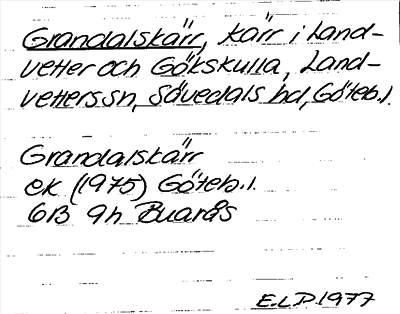 Grandalskärr, kärr i Land-
vetter och Gökskulla, Land-
vetters sn, Sävedals hd, Göteb. l.
Grandalskärr
ek (1975) Göteb. l.
6B 9h Buarås
E.L.D. 1977